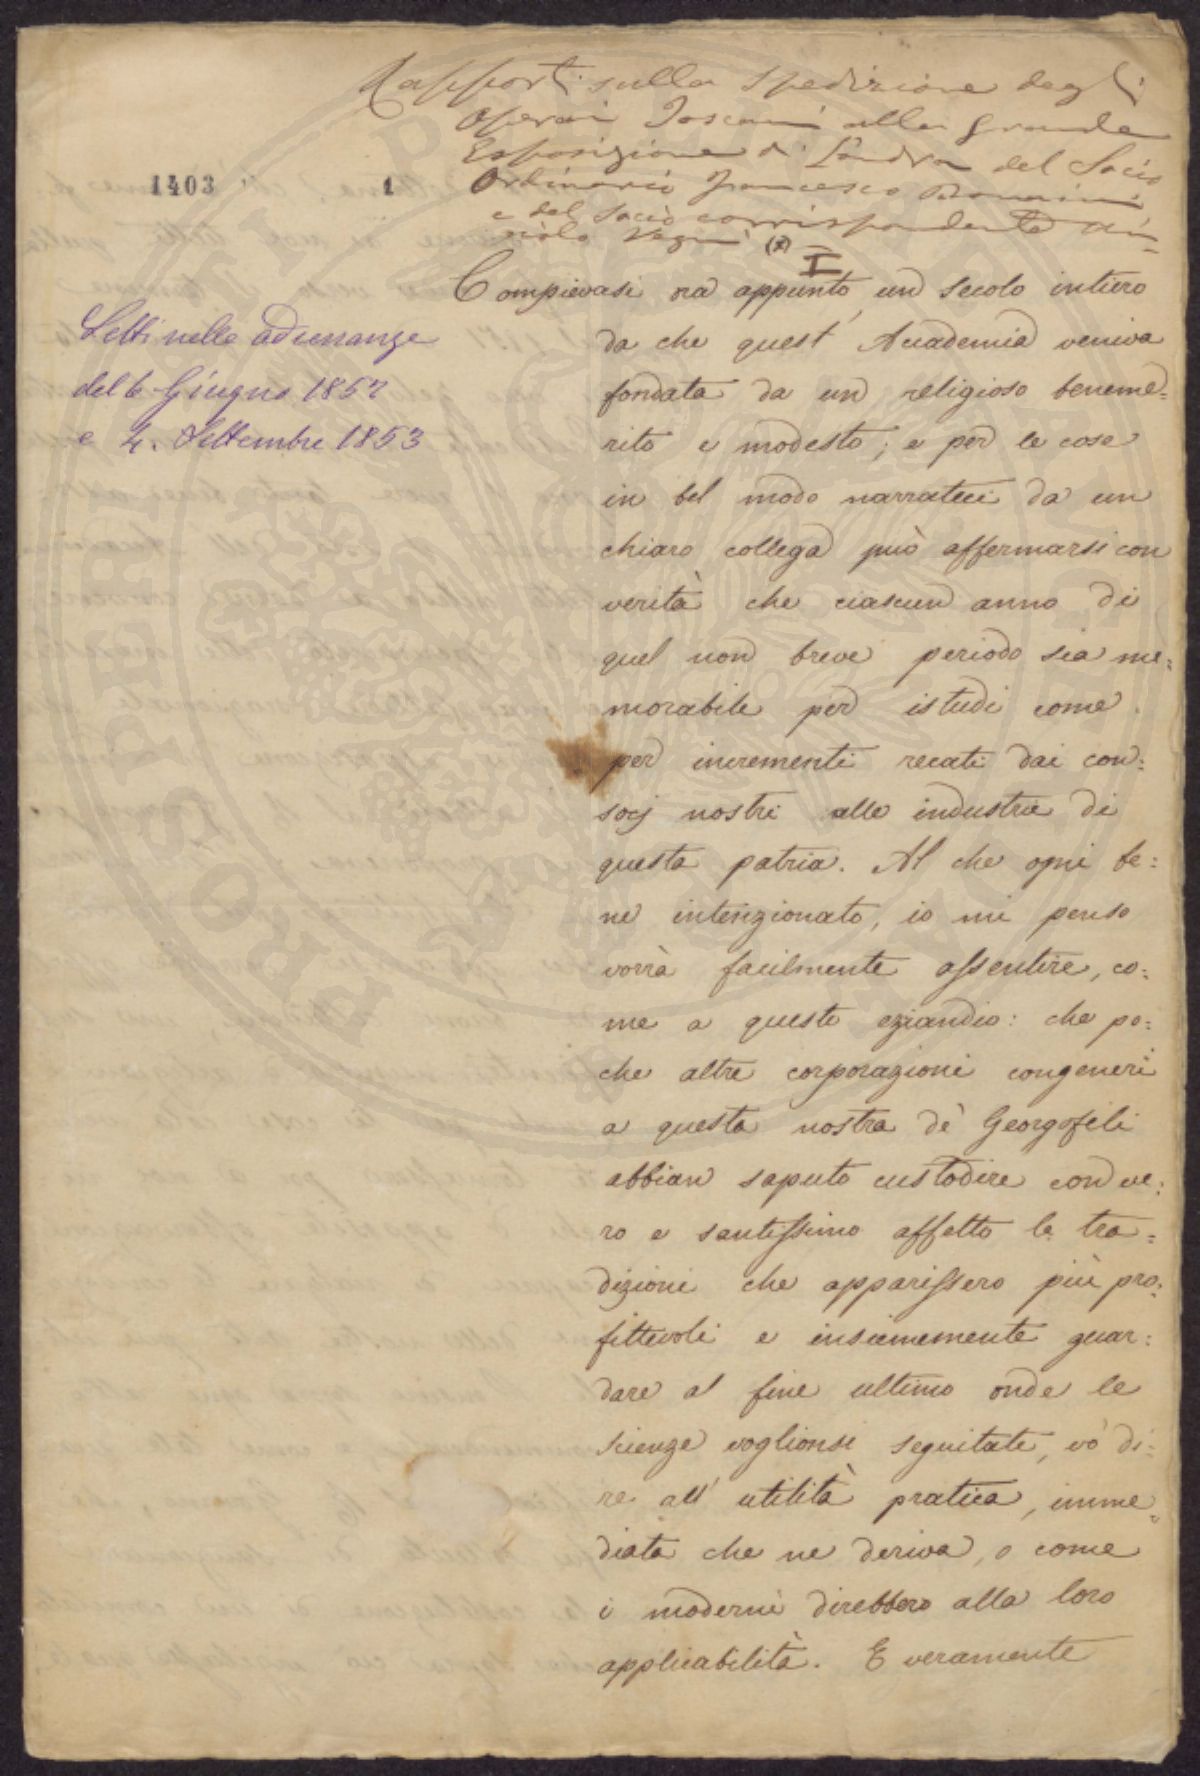 Rapporti sulla Spedizione degli
Operai Toscani alla Grande
Esposizione di Londra del Socio
Ordinario Francesco Bonaini
e del Socio corrispondente An-
giolo Vegni (*)
1403
1
I
Compievasi ora appunto un secolo intiero
da che quest' Accademia veniva
fondata da un religioso beneme=
rito e modesto; e per le cose
in bel modo narrateci da un
chiaro collega può affermarsi con
verità che ciascun anno di
quel non breve periodo sia me=
morabile per istudi come
per incrementi recati dai con=
socj nostri alle industrie di
questa patria. Al che ogni be=
ne intenzionato, io mi penso
vorrà facilmente assentire, co=
me a questo eziandio: che po=
che altre corporazioni congeneri
a questa nostra de' Georgofili
abbian saputo custodire con ve=
ro e santissimo affetto le tra=
dizioni che apparissero più pro=
fittevoli e insiememente guar=
dare al fine ultimo onde le
scienze voglionsi seguitate, vo' di=
re all' utilità pratica, imme=
diata che ne deriva, o come
i moderni direbbero alla loro
applicabilità. E veramente
Letti nelle adunanze
del 6 Giugno 1852
e 4. Settembre 1853